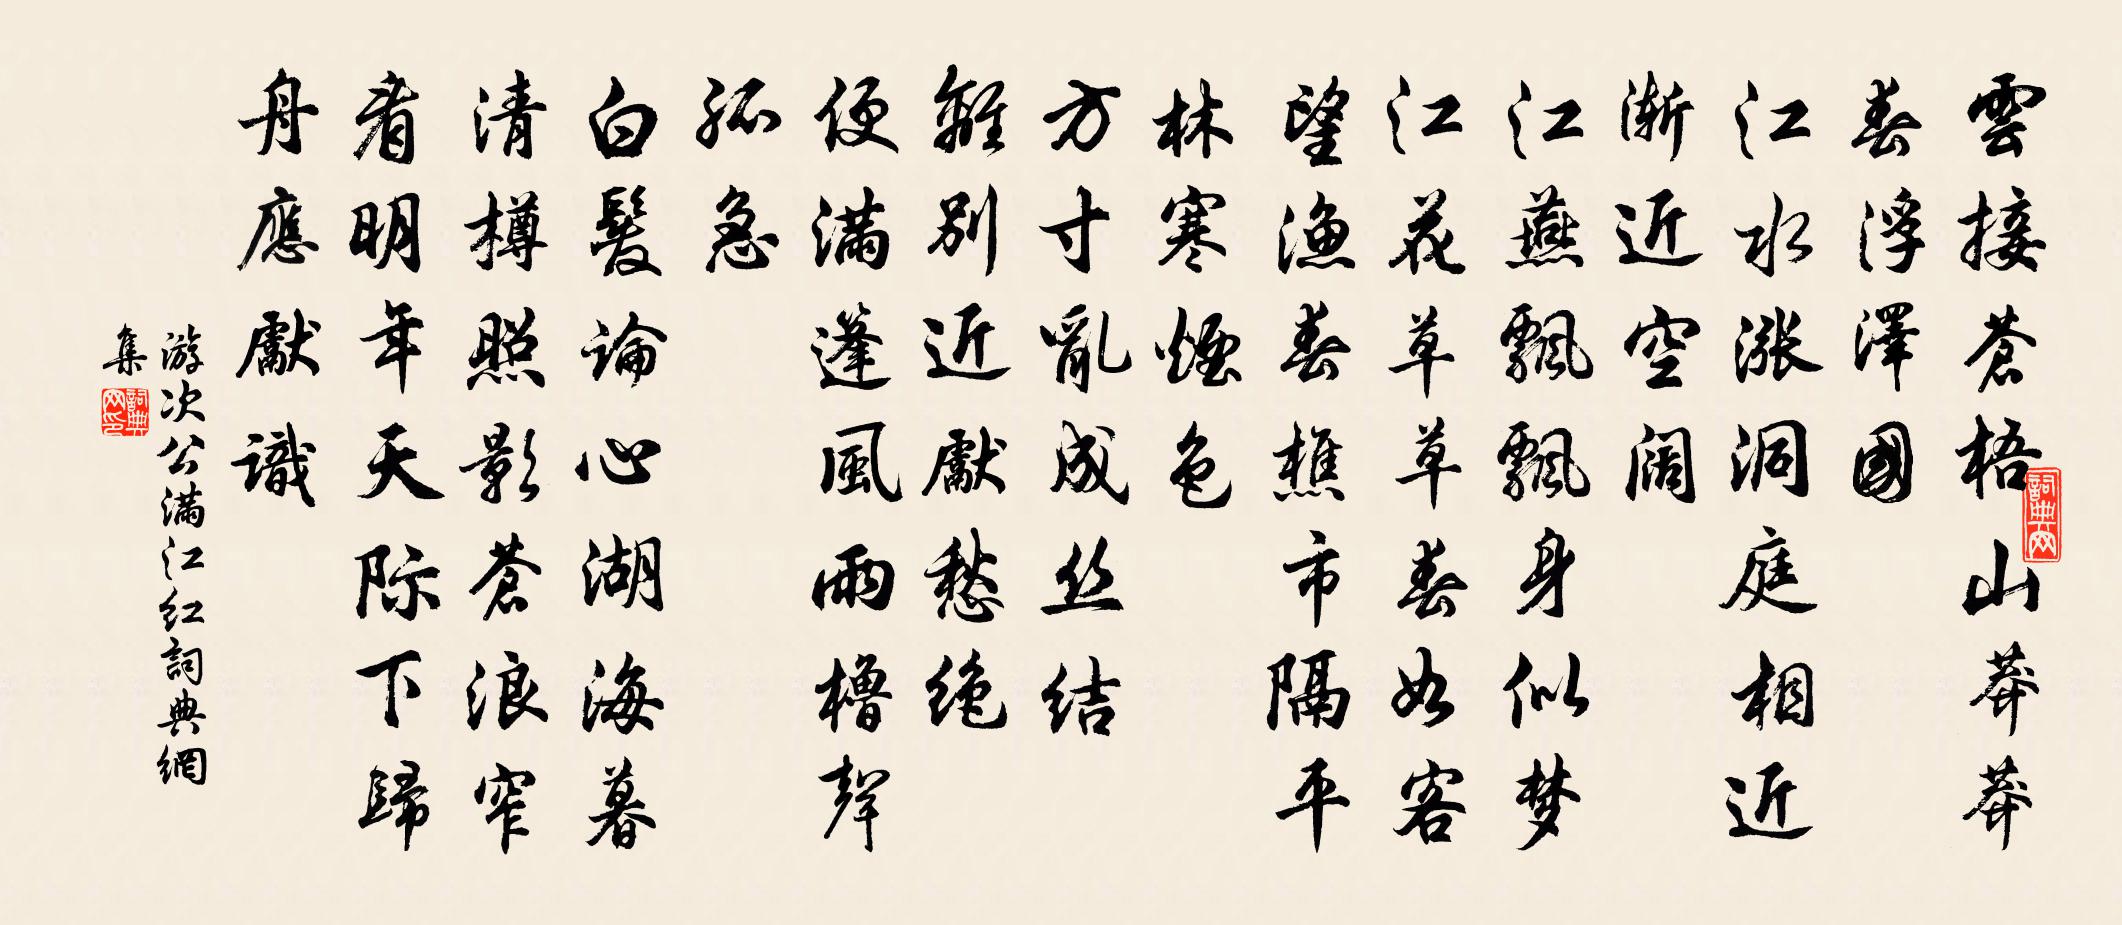 雲接蒼梧山莽莽
春浮澤國
江水漲洞庭相近
渐近空阔
江燕飄飄身似梦
江花草草春如客
望漁春樵市隔平
林寒煙色
方寸亂成丝结
離別近獻愁绝
便滿篷風雨櫓聲
孤急
白髮論心湖海暮
清樽照影蒼浪窄
看明年天际下歸
舟應獻識
游次公滿江红詞典網
集
詞典网
詞典网印